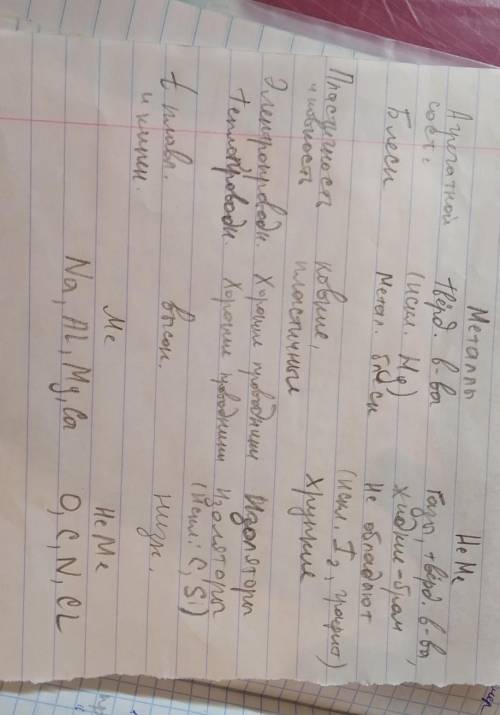 Металлы НеМе
Агрегатной сост: твёрд. в-ва Газы, твёрд. в-ва,
(искл. Hg) жидкие - бром
Блеск метал. блеск Не обладают
(искл. I2, графит)
Пластичность ковкие, Хрупкие
и ковкость пластичные
Электропроводн. Хорошие проводники Изоляторы
теплопроводн. Хорошие проводники Изоляторы
(искл: C, Si)
t плавл. высок. низк.
и кипен.
Ме НеМе
Na, Al, Mg, Ca O, C, N, Cl